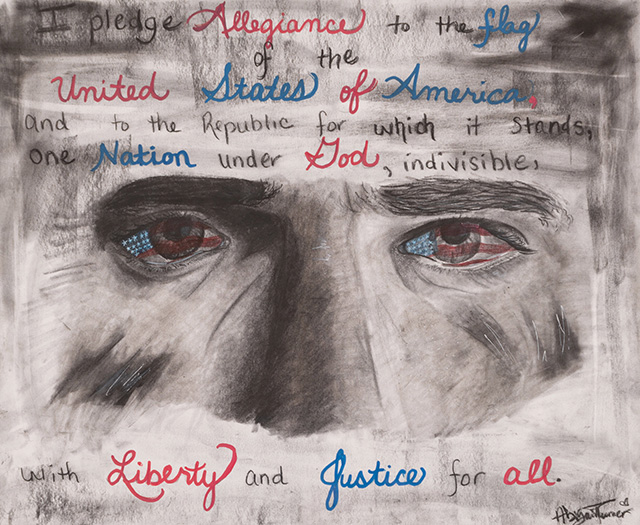 I pledge Allegiance to the flag
of the
United States of America,
and to the Republic for which it stands,
one Nation under God, indivisible,
with Liberty and Justice for all.